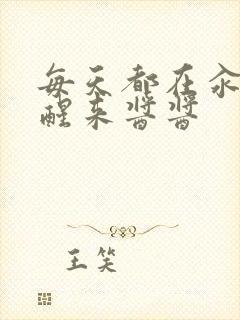 每天都在汆
醒来酱酱
王笑